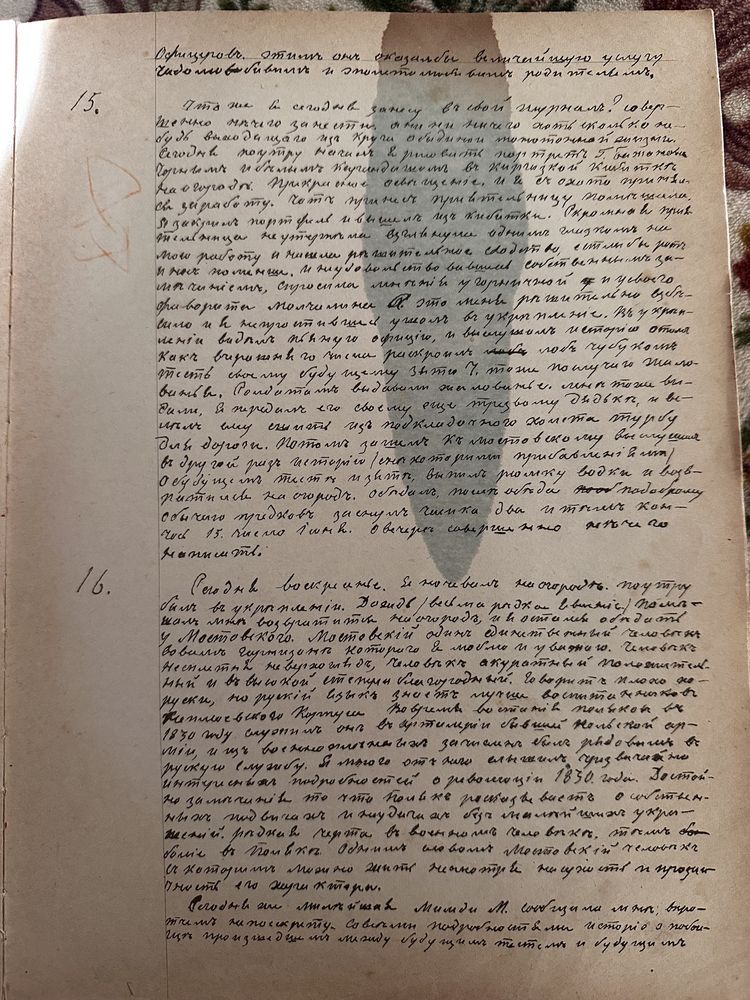 Офицеровъ. этимъ онъ оказалбы величайшую услугу
чадолюбивымъ и эполетолюбивымъ родителямъ.
15.
Что же я сегодня занесу въ свой журналъ? совер-
шенно нечего занести, ни ничего хоть сколько ни-
будь выходящаго изъ круга обыденной монотонной жизни.
Сегодня поутру началъ я рисовать портретъ Г. Бажанова
чорнымъ и белымъ карандашомъ въ киргизкой кибиткѣ
на огородѣ. Прикрасное освещеніе. и я съ охотой принял-
ся за работу. Чортъ принесъ приятельницу помѣшала.
Я закрылъ портфель и вышелъ изъ кибитки. Скромная прия
тельница неутерпѣла взглянула однимъ глазкомъ на
мою работу и нашла рѣшительное сходство, естлибы ротъ
и носъ поменше. и неудовольствовавшися собственнымъ за-
мѣчаніемъ, спросила мненія у горничной и у своего
фаворита молчалина это меня рѣшительно взбѣ-
сило и я непростившися ушолъ въ укрѣпленіе. Въ укреп-
леніи видѣлъ пьяного офицера, и выслушалъ исторію о томъ
какъ вчерашняго числа раскроилъ лобъ чубукомъ
тесть своему будущему зятю Ч. тоже по случаю жало-
ванья. Солдатамъ выдавали жалованье. мнѣ тоже вы-
дали. Я передалъ его своему еще трезвому дядькѣ, и ве-
лѣлъ ему сшить изъ подкладочного холста турбу
для дороги. Потомъ зашолъ къ мостовскому выслушалъ
въ другой разъ исторію (снѣкоторыми прибавленіями)
о будущемъ тестѣ и зятѣ, выпилъ рюмку водки и возв-
ратился на огородъ. обѣдалъ, послѣ обѣда подоброму
обычаю предковъ заснулъ часика два и тѣмъ кон-
чилъ 15. число іюня. Овечерѣ совершенно нечего
написать.
16.
Сегодня воскресенье. Я ночевалъ на огородѣ. поутру
былъ въ укрѣпленіи. Дождь (весьма рѣдкое явленіе) помѣ-
шалъ мнѣ возвратится на огородъ, и я остался обѣдать
у Мостовского. Мостовскій одинъ единственный человѣкъ
вовсемъ гарнизонѣ котораго я люблю и уважаю. Человѣкъ
несплетня неверхоглядъ, человѣкъ акуратный положитель-
ный и въ высокой степени благородный. Говоритъ плохо по-
руски, но рускій языкъ знаетъ лучше воспитанниковъ
Неплюевского Корпуса. Вовремя востанія поляковъ въ
1830 году служилъ онъ въ артилеріи бывшей Польской ар-
міи, и изъ военноплѣнныхъ зачисленъ былъ рядовымъ въ
рускую службу. Я много отъ него слышалъ чрезвичайно
интересныхъ подробностей о революціи 1830. года. Достой-
но замѣчанія то что Полякъ розсказываетъ о собствен-
ныхъ подвигахъ и неудачахъ безъ малѣйшихъ укра-
шеній. рѣдкая черта въ военномъ человѣкѣ. тѣмъ
болѣе въ Полякѣ. Однимъ словомъ Мостовскій человѣкъ
съ которымъ можно жить несмотря на сухость и прозаи-
чность его характера.
Сегодня же милѣйшая Мамди М. сообщила мнѣ, впро-
чемъ по секрету. Совсѣми подробностями исторію о побои-
щѣ произшедшемъ между будущимъ тестемъ и будущимъ